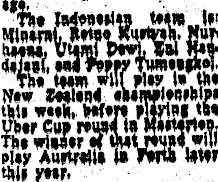 ago.
The Indonesian team is:
Minarni, Retno Kustyah, Nur-
haena, Utami Dewi, Zul Han-
dajani, and Poppy Tumengkol.
The team will play in the
New Zealand championships
this week, before playing the
Uber Cup round in Masterton.
The winner of that round will
play Australia in Perth later
this year.